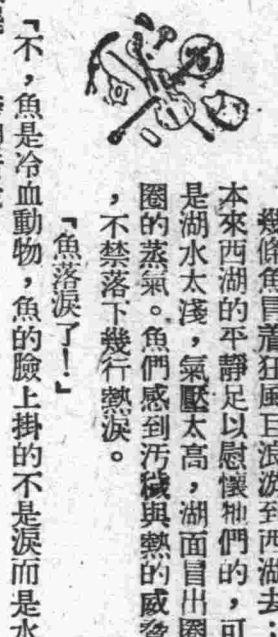 幾條魚冒着狂風巨浪游到西湖去
本來西湖的平靜足以慰懷牠們的，可
是湖水太淺，氣壓太高，湖面冒出圈
圈的蒸氣。魚們感到汚穢與熱的威
，不禁落下幾行熱淚。
「魚落淚了！」
「不，魚是冷血動物，魚的臉上掛的不是淚而是水